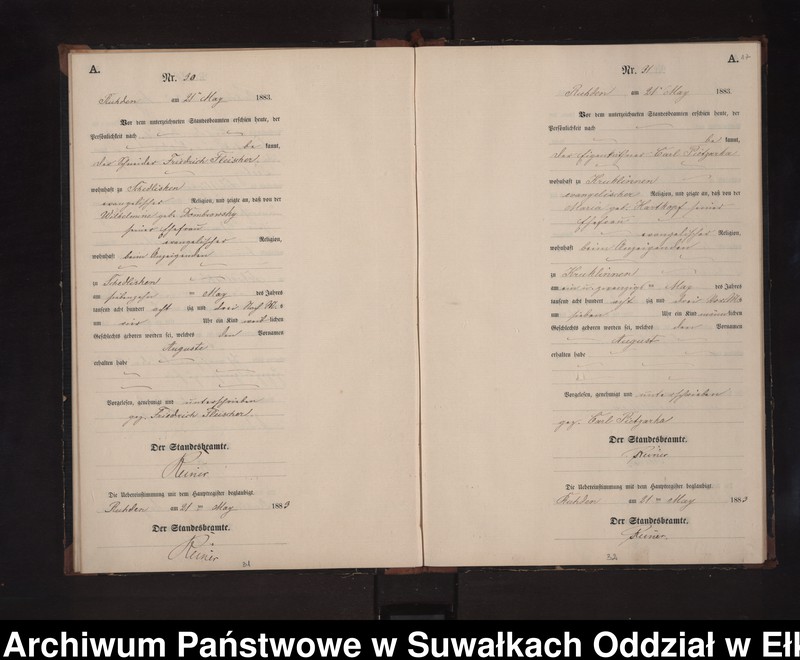 A.
Nr. 30
Ruhden am 21 May 1883.
Vor dem unterzeichneten Standesbeamten erschien heute, der
Persönlichkeit nach
be kannt,
der Schneider Friedrich Fleischer
wohnhaft zu Schedlisken
evangelischer Religion, und zeigte an, daß von der
Wilhelmine geb. Dombrowsky
seiner Ehefrau
evangelischer Religion,
wohnhaft beim Anzeigenden
zu Schedlisken
am siebenzehn ten May des Jahres
tausend acht hundert acht zig und drei
um vier Uhr ein Kind weib lichen
Geschlechts geboren worden sei, welches den Vornamen
Auguste
erhalten habe
Vorgelesen, genehmigt und unterschrieben
gez. Friedrich Fleischer.
Der Standesbeamte.
Reiner
Die Uebereinstimmung mit dem Hauptregister beglaubigt.
Ruhden am 21 ten May 1883
Der Standesbeamte.
Reiner
31
A.
Nr. 31
Ruhden am May 1883.
Vor dem unterzeichneten Standesbeamten erschien heute, der
Persönlichkeit nach
be kannt,
der Eigenkäthner Carl Pietzarka
wohnhaft zu Kruklinnen
evangelischer Religion, und zeigte an, daß von der
Maria geb. Hartkopf seiner
Ehefrau
evangelischer Religion,
wohnhaft beim Anzeigenden
zu Kruklinnen
am ten May des Jahres
tausend acht hundert acht zig und drei
um sieben Uhr ein Kind männ lichen
Geschlechts geboren worden sei, welches den Vornamen
August
erhalten habe
Vorgelesen, genehmigt und unterschrieben
gez. Carl Pietzarka
Der Standesbeamte.
Reiner
Die Uebereinstimmung mit dem Hauptregister beglaubigt.
Ruhden am 21 ten May 1883
Der Standesbeamte.
Reiner
32
Archiwum Państwowe w Suwałkach Oddział w Ełk